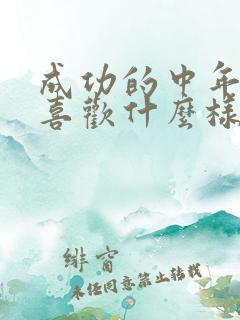 成功的中年
喜歡什麼樣
緋窗
未经同意禁止转载